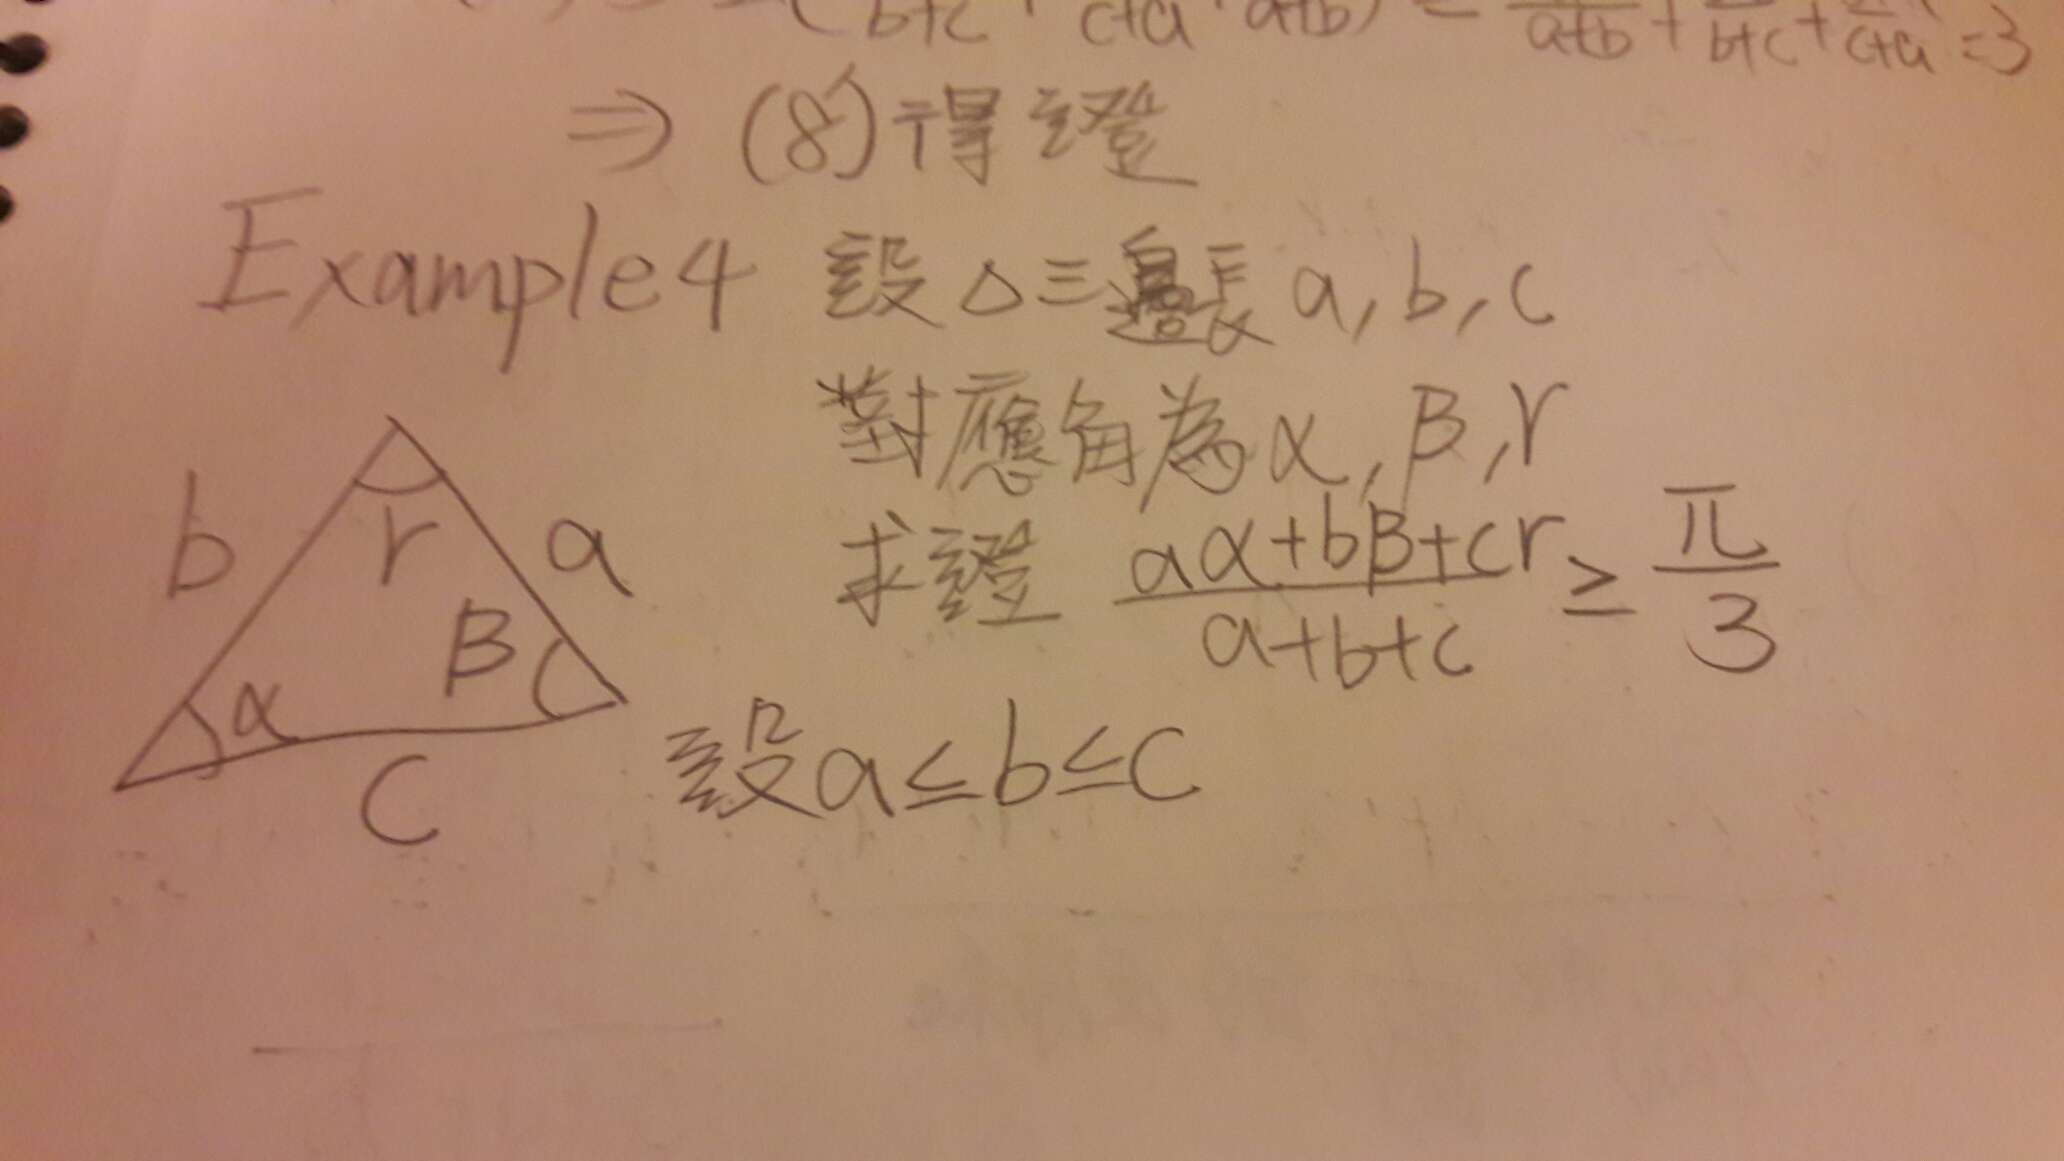 b+c c+a a+b) a+b + b+c + c+a =3
⇒ (8)得證
Example4 設△三邊長 a, b, c
對應角為 α, β, r
求證 aα+bβ+cr / a+b+c ≥ π/3
b r a
α β
c
設a≤b≤c